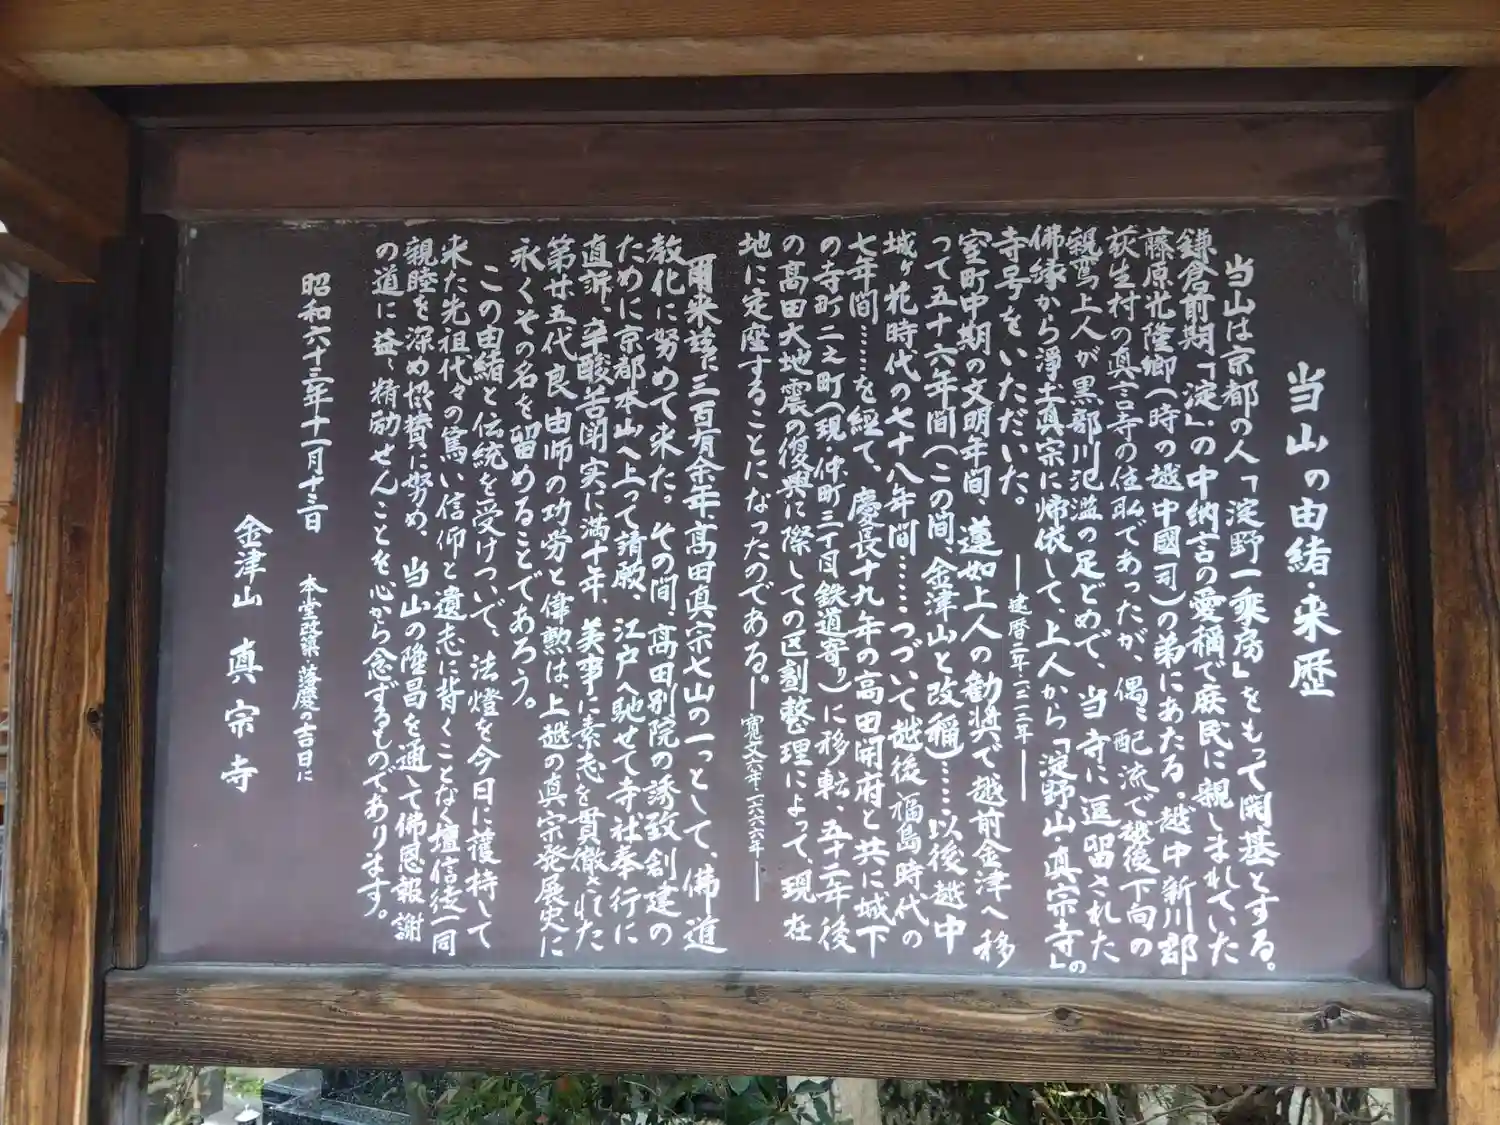 当山の由緒・来歴
当山は京都の人「淀野一乘房」をもって開基とする。
鎌倉前期「淀」の中納言の愛稱で庶民に親しまれていた
藤原光隆卿（時の越中國司）の弟にあたる。越中新川郡
荻生村の真言寺の住職であったが、偶〻配流で越後下向の
親鸞上人が黒部川氾濫の足どめで、当寺に逗留された
佛縁から浄土真宗に帰依して、上人から「淀野山真宗寺」の
寺号をいただいた。　―建暦二年・一二一二年―
室町中期の文明年間、蓮如上人の勧奨で越前金津へ移
って五十六年間（この間、金津山と改稱）……以後越中
城ヶ花時代の七十八年間……つづいて越後福島時代の
七年間……を経て、慶長十九年の高田開府と共に城下
の寺町二之町（現・仲町三丁目鉄道寄り）に移転、五十二年後
の高田大地震の復興に際しての区劃整理によって、現在
地に定座することになったのである。―寛文六年・一六六六年―
爾来茲に三百有余年高田真宗七山の一つとして、佛道
教化に努めて来た。その間、高田別院の誘致創建の
ために京都本山へ上って請願、江戸へ馳せて寺社奉行に
直訴、辛酸苦闘実に満十年、美事に素志を貫徹された
第廿五代良由師の功労と偉勲は、上越の真宗発展史に
永くその名を留めることであろう。
この由緒と伝統を受けついで、法燈を今日に護持して
来た先祖代々の篤い信仰と遺志に背くことなく壇信徒一同
親睦を深め協賛に努め、当山の隆昌を通して佛恩報謝
の道に益〻精励せんことを心から念ずるものであります。
昭和六十三年十一月十三日　本堂改築・落慶の吉日に
金津山　真宗寺